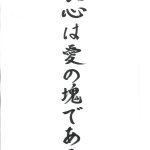 心は愛の塊である